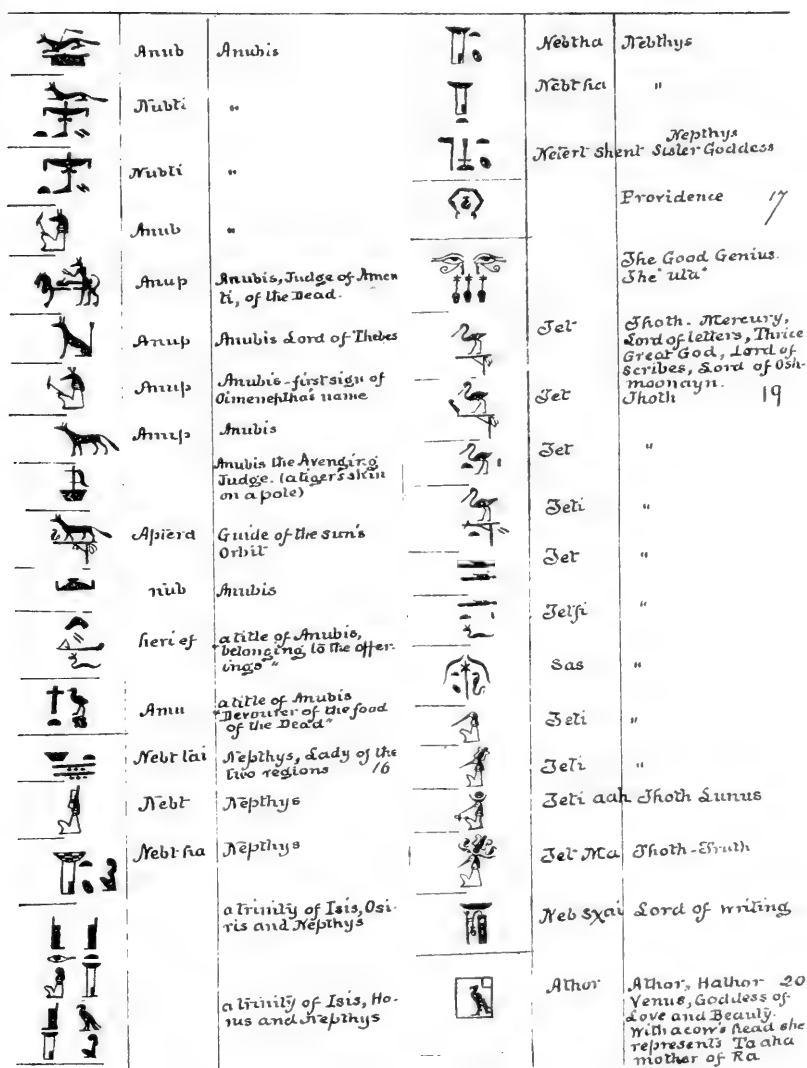 Anub Anubis
Nubti "
Nubti "
Anub "
Anup Anubis, Judge of Amen
ti, of the Dead.
Anup Anubis Lord of Thebes
Anup Anubis-first sign of
Oimeneptha's name
Anup Anubis
Anubis the Avenging
Judge. (a tiger's skin
on a pole)
Apierd Guide of the sun's
Orbit
nub Anubis
heri ef a title of Anubis,
"belonging to the offer-
ings"
Amu a title of Anubis
"Devourer of the food
of the Dead"
Nebt tai Nepthys, Lady of the
two regions 16
Nebt Nepthys
Nebt ha Nepthys
a trinity of Isis, Osi-
ris and Nepthys
a trinity of Isis, Ho-
rus and Nepthys
Nebtha Nebthys
Nebt ha "
Nepthys
Neiert Shent Sister Goddess
Providence 17
The Good Genius.
The "uta"
Tet Thoth. Mercury,
Lord of letters, Thrice
Great God, Lord of
scribes, Lord of Osh-
moonayn.
Tet Thoth 19
Tet "
Teti "
Tet "
Tetfi "
Sas "
Teti "
Teti "
Teti aah Thoth Lunus
Tet Ma Thoth-Truth
Neb sxai Lord of writing
Athor Athor, Hathor 20
Venus, Goddess of
Love and Beauty.
With a cow's head she
represents Ta aha
mother of Ra